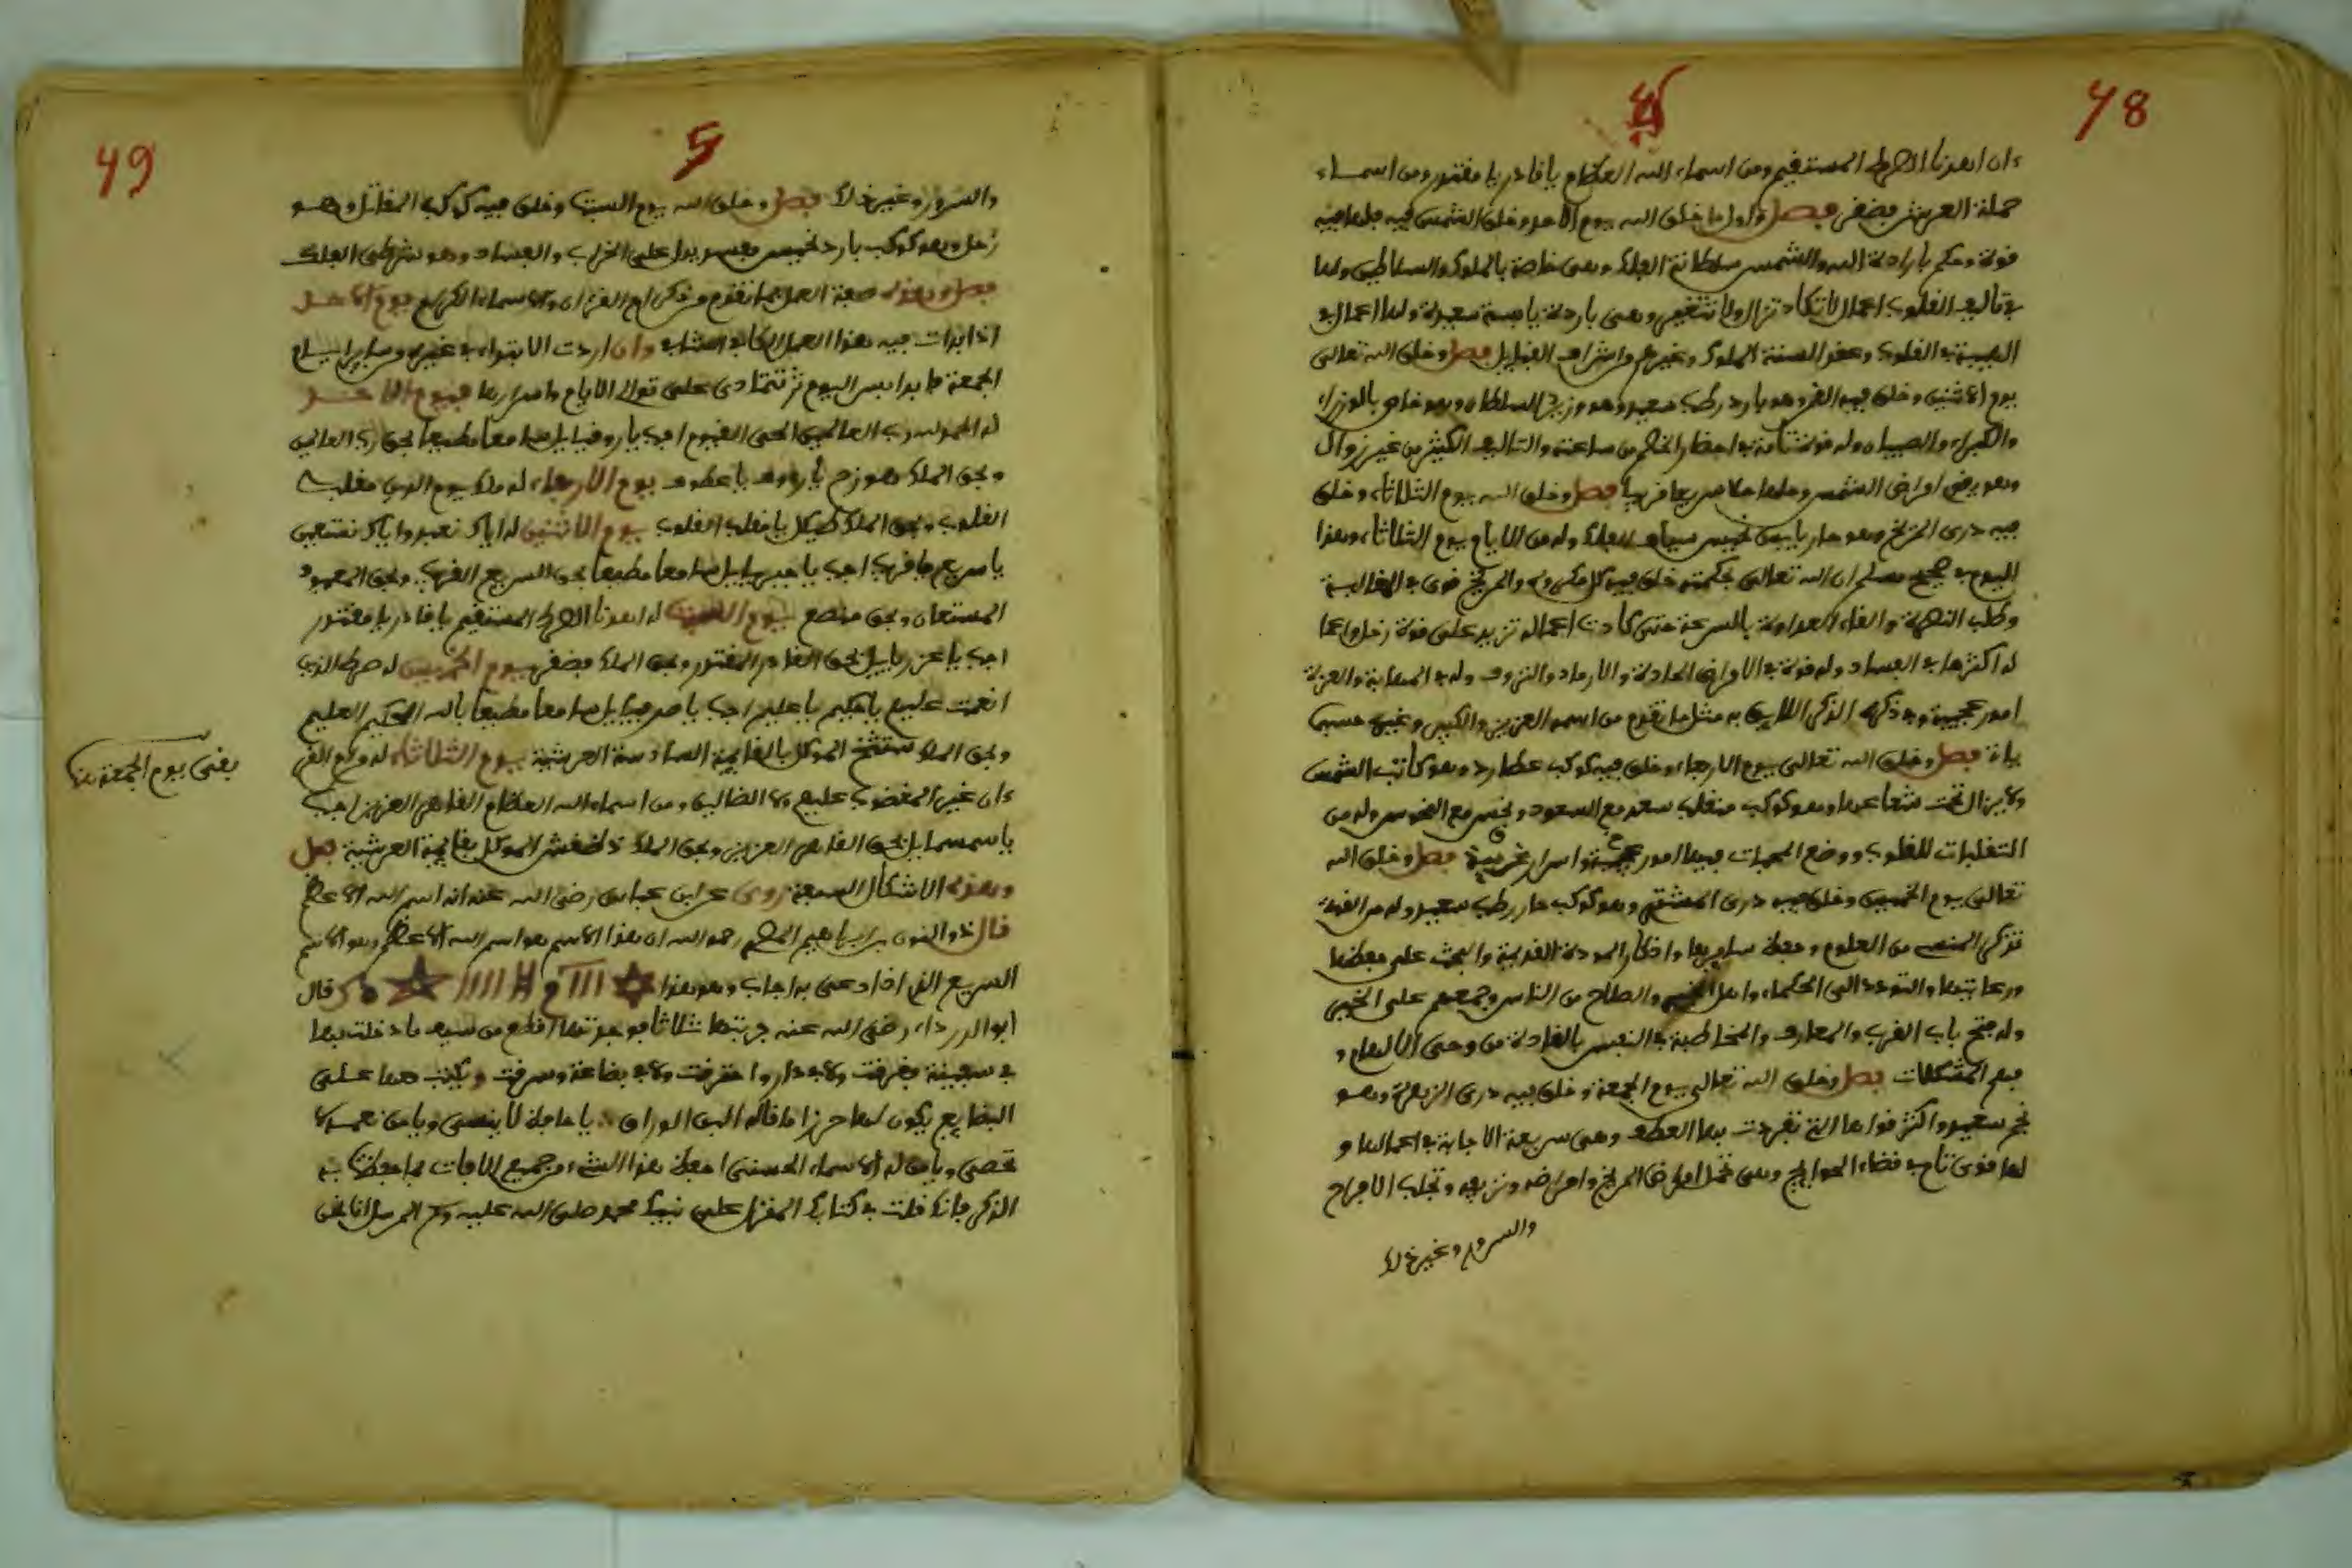 48
ءان اهدنا الصراط المستقيم ومن اسماء الله العظام يا قادر يا مقتدر ومن اسماء
حملة العرش فصل واول ما خلق الله يوم الاحد وخلق الشمس فيه فلها فيه
قوة وحكم بارادة الله والشمس سلطانة الفلك وهي خاصة بالملوك والسلاطين ولها
في تاليف القلوب اعمال لا تكاد تزال ولا تتغير وهي باردة يابسة سعيدة ولها اعمال في
الهيبة في القلوب وعقد السنة الملوك وغيرهم واشراف القبايل فصل وخلق الله تعالى
يوم الاثنين وخلق فيه القمر وهو بارد رطب سعيد وهو وزير السلطان وهو خاص بالوزراء
والكبراء والصبيان وله قوة تامة في احضار الخصم من ساعته والتاليف الكثير من غير زوال
وهو يقضي اغراض الشمس وحلها حلا سريعا قريبا فصل وخلق الله يوم الثلاثاء وخلق
فيه دري المريخ وهو حار يابس نحيس سياف الفلك وله من الايام يوم الثلاثاء وهذا
اليوم في صحيح مسلم ان الله تعالى بحكمته خلق فيه كل مكروه والمريخ قوي في المغالبة
وطلب النصرة والقاء العداوة بالسرعة حتى كادت اعماله تزيد على قوة زحل واعما
له اكثرها في الفساد وله قوة في الامراض الحادة والارماد والنزوف وله في المهابة والعزة
امور عجيبة وفي ذكره الذكر اللايق به مثل ما تقدم من اسمه العزيز والكبير وغيره حسبما
ياتي فصل وخلق الله تعالى يوم الاربعاء وخلق فيه كوكب عطارد وهو كاتب الشمس
ولا يزال تحت شعاعها وهو كوكب منقلب سعد مع السعود ونحس مع النحوس وله من
التقلبات للقلوب ووضع المحبات فيها امور عجيبة واسرار غريبة فصل وخلق الله
تعالى يوم الخميس وخلق فيه دري المشتري وهو كوكب حار رطب سعيد وله من القوة
تذكر المنسي من العلوم وحفظ سايرها واذكار المودة القديمة والبحث على حفظها
ورعايتها والتودد الى الحكماء واهل الخير والصلاح من الناس وجمعهم على الخير
وله فتح باب القرب والمعارف والمخاطبة في النفس بالفادة من وحي الالهام و
فهم المشكلات فصل وخلق الله تعالى يوم الجمعة وخلق فيه دري الزهرة وهو
نجم سعيد واكثر قواها التي تفردت بها العطف وهي سريعة الاجابة في اعمالها و
لها قوى تام في قضاء الحوايج وهي تحل امراض المريخ وامراضه ونزيفه وتجلب الافراح
والسرور وغير ذلك
49
5
والسرور وغير ذلك فصل وخلق الله يوم السبت وخلق فيه كوكب المقاتل وهو
زحل وهو كوكب بارد نحيس مفسد يدل على الخراب والفساد وهو شرطي الفلك
فصل وهذه صفة العمل بما تقدم من ذكر ام القرءان والاسماء الكرام يوم الاحد
اذا بدات فيه هذا العمل وان اردت الابتداء في غيره من ساير ايام
الجمعة فابدا بسر اليوم ثم تتمادى على توالي الايام واسرارها فيوم الاحد
له الحمد لله رب العالمين الحي القيوم اجب يا روقيايل سامعا مطيعا بحق رب العالمين
وبحق الملك يا رءوف يا عطوف يوم الاربعاء له ملك يوم الدين مقلب
القلوب وبحق الملك يا مقلب القلوب يوم الاثنين له اياك نعبد واياك نستعين
يا سريع يا قريب اجب يا جبرايل سامعا مطيعا بحق السريع القريب وبحق المعبود
المستعان وبحق يوم السبت له اهدنا الصراط المستقيم يا قادر يا مقتدر
اجب يا عزرايل بحق القادر المقتدر وبحق الملك يوم الخميس له صراط الذين
انعمت عليهم يا حكيم يا عليم اجب يا صرفيايل سامعا مطيعا بالله الحكيم العليم
وبحق الملك الموكل بالقايمة السادسة العرشية يوم الثلاثاء له من ام القر
ءان غير المغضوب عليهم ولا الضالين ومن اسماء الله العظام القاهر العزيز اجب
يا سمسمايل بحق القاهر العزيز وبحق الملك الموكل بقايمة العرشية فصل
وهذه الاشكال السبعة روى عن ابن عباس رضي الله عنه انه اسم الله الاعظم
قال ذو النون بن ابراهيم المصري رحمه الله ان هذا الاسم هو اسم الله الاعظم وهو الاسم
السريع الذي اذا دعي به اجاب وهو هذا ✡ ااا م # اااا ★ ه و قال
ابو الدرداء رضي الله عنه جربتها ثلاثا فوجدتها اقطع من سيف ما دخلت بها
في سفينة فغرقت ولا في دار واحترقت ولا في بضاعة وسرقت وتكتب هما على
البضايع يكون لها حرزا ما قاله البن الوراق يا من لا ينسى ويا من نعمه لا
تحصى ويا من له الاسماء الحسنى احفظ هذا الشيء من جميع الافات بما حفظت به
الذكر فانك قلت في كتابك المنزل على نبيك محمد صلى الله عليه وسلم المرسل انا نحن
يعني يوم الجمعة